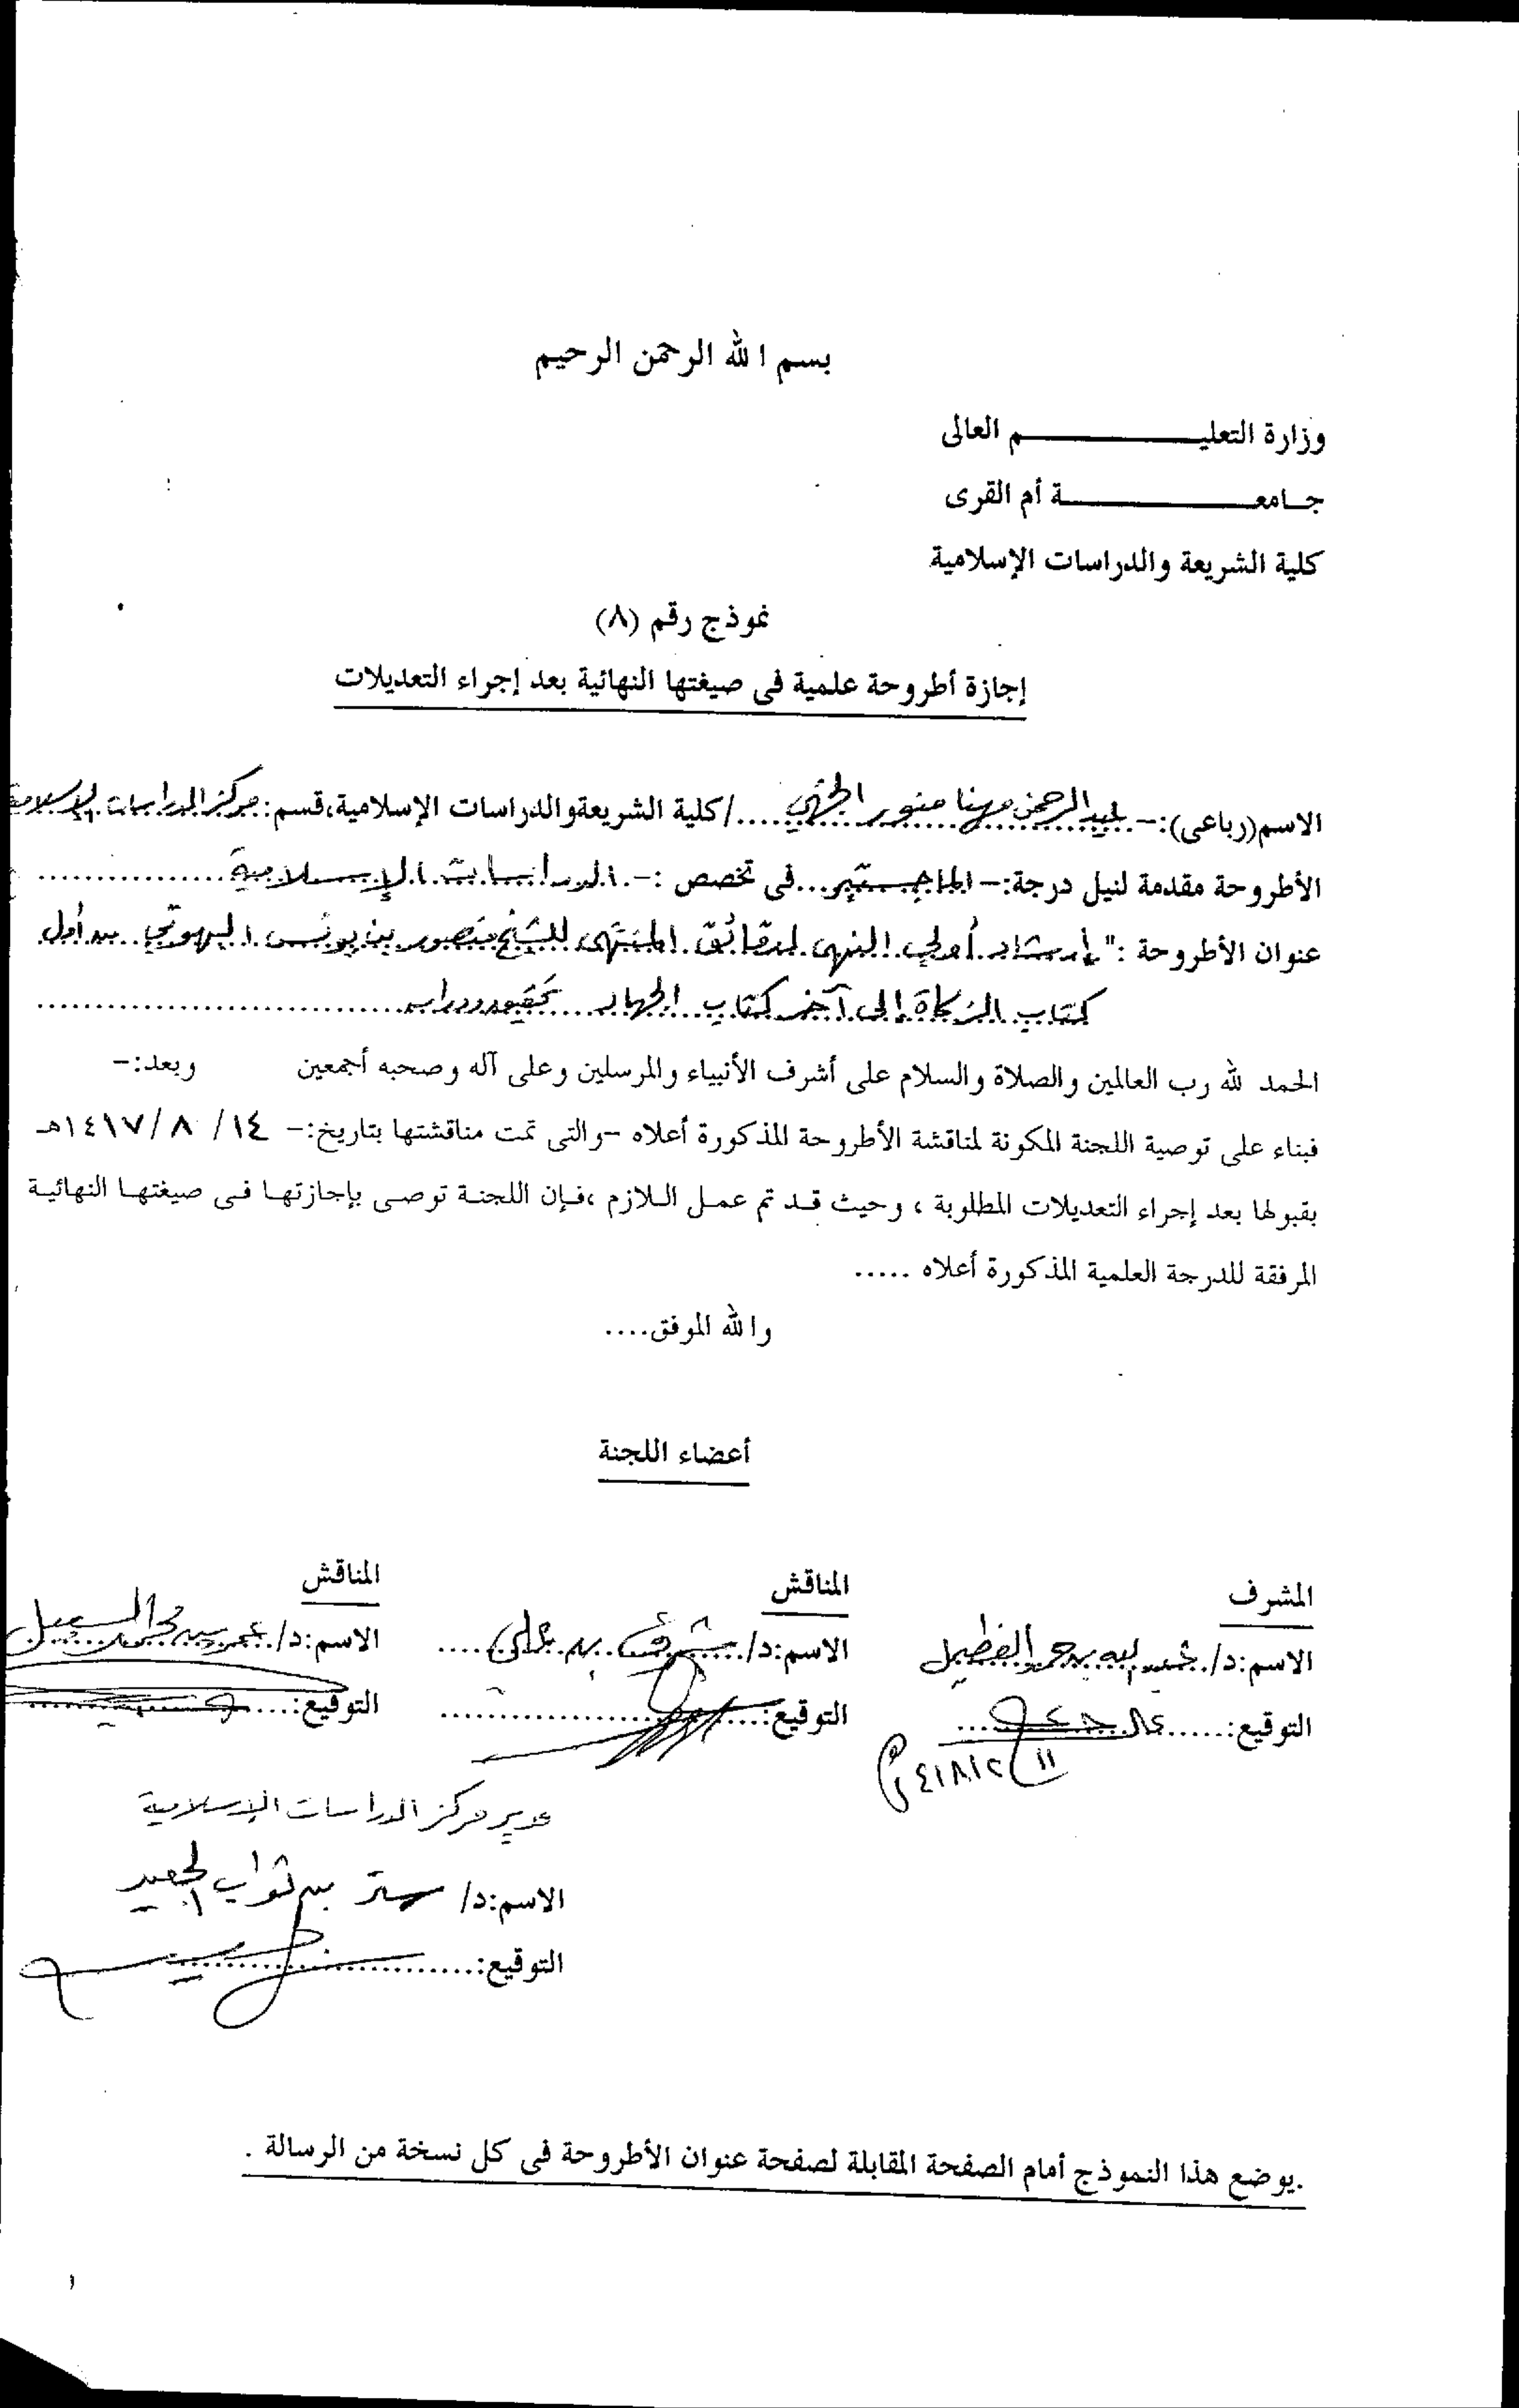 بسم الله الرحمن الرحيم
وزارة التعليـــــــــــــم العالى
جـامعــــــــــــــة أم القرى
كلية الشريعة والدراسات الإسلامية
نموذج رقم (٨)
إجازة أطروحة علمية فى صيغتها النهائية بعد إجراء التعديلات
الاسم(رباعى):- عبد الرحمن مهنا منور الجهني ..../كلية الشريعة والدراسات الإسلامية،قسم: مركز الدراسات الإسلامية
الأطروحة مقدمة لنيل درجة:- الماجستير...فى تخصص :- الدراسات الإسلامية................
عنوان الأطروحة :" إرشاد أولي النهى لدقائق المنتهى للشيخ منصور بن يونس البهوتي من أول
كتاب الزكاة إلى آخر كتاب الجهاد تحقيق ودراسة
الحمد لله رب العالمين والصلاة والسلام على أشرف الأنبياء والمرسلين وعلى آله وصحبه أجمعين وبعد:-
فبناء على توصية اللجنة المكونة لمناقشة الأطروحة المذكورة أعلاه -والتى تمت مناقشتها بتاريخ:- ١٤/ ٨ /١٤١٧هـ
بقبولها بعد إجراء التعديلات المطلوبة ، وحيث قـد تم عمـل الـلازم ،فـإن اللجنـة توصـى بإجازتهـا فـى صيغتهـا النهائيـة
المرفقة للدرجة العلمية المذكورة أعلاه .....
والله الموفق....
أعضاء اللجنة
المشرف المناقش المناقش
الاسم:د/ الاسم:د/ شرف بن علي .... الاسم:د/ عمر بن محمد السبيل
التوقيع: التوقيع: التوقيع:
مدير مركز الدراسات الإسلامية
الاسم:د/ ستر بن ثواب الجعيد
التوقيع:
.يوضع هذا النموذج أمام الصفحة المقابلة لصفحة عنوان الأطروحة فى كل نسخة من الرسالة .